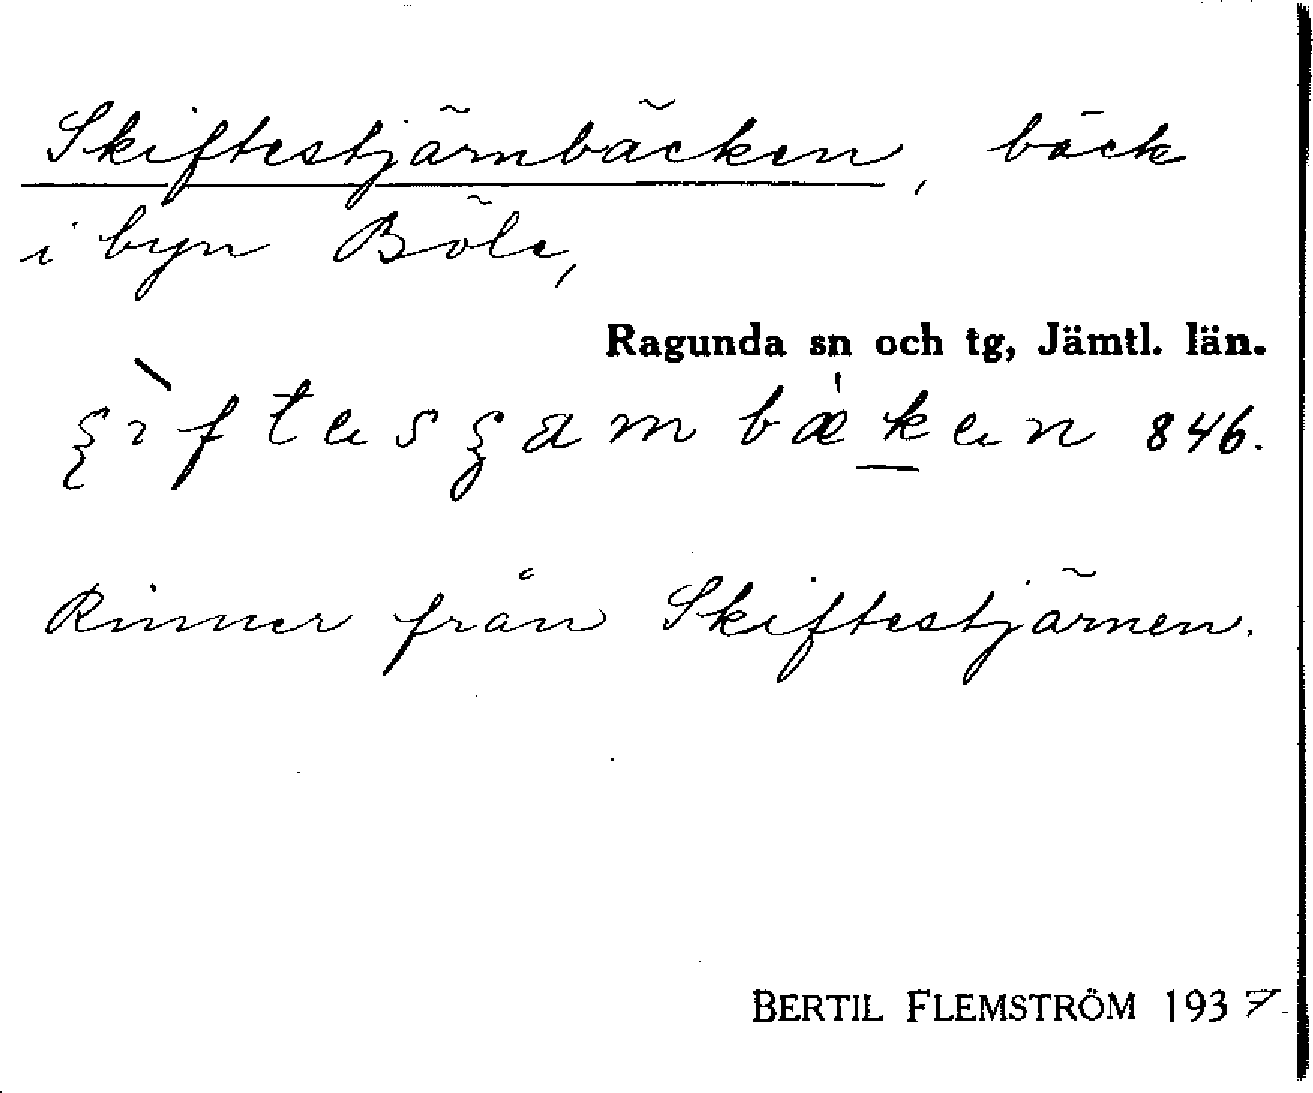 Skiftestjärnbäcken, bäck
i byn Böle,
Ragunda sn och tg, Jämtl. län.
846.
Rinner från Skiftestjärnen.
BERTIL FLEMSTRÖM 1937